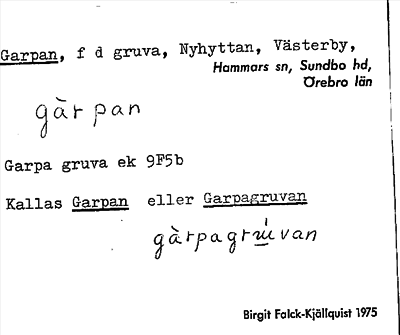 Garpan, f d gruva, Nyhyttan, Västerby,
Hammars sn, Sundbo hd,
Örebro län
gàrpan
Garpa gruva ek 9F5b
Kallas Garpan eller Garpagruvan
gàrpagru̇van
Birgit Falck-Kjällquist 1975